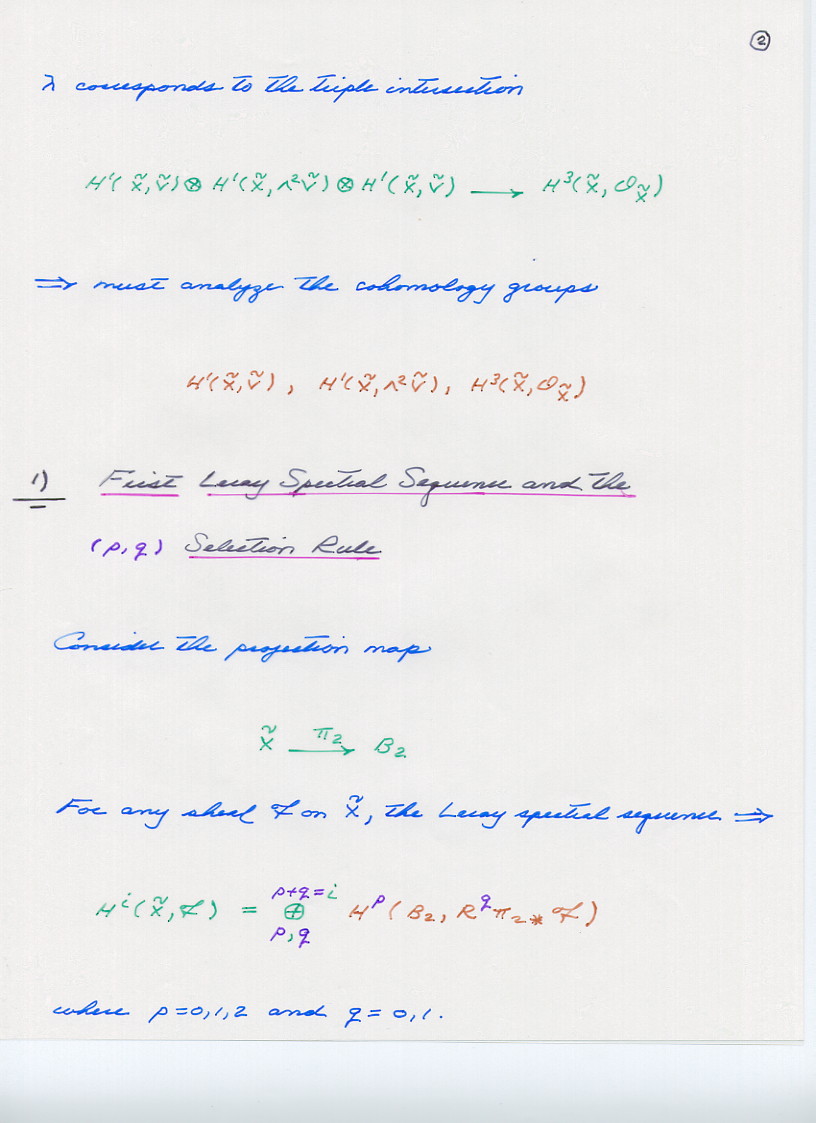 ②
λ corresponds to the triple intersection
H¹(X̃,Ṽ)⊗H¹(X̃,∧²Ṽ)⊗H¹(X̃,Ṽ) ⟶ H³(X̃,𝒪_X̃)
⇒ must analyze the cohomology groups
H¹(X̃,Ṽ), H¹(X̃,∧²Ṽ), H³(X̃,𝒪_X̃)
1) First Leray Spectral Sequence and the
(p,q) Selection Rule
Consider the projection map
X̃ —π₂→ B₂
For any sheaf ℱ on X̃, the Leray spectral sequence ⇒
Hⁱ(X̃,ℱ) = ⊕_{p,q}^{p+q=i} H^p(B₂, R^q π₂* ℱ)
where p=0,1,2 and q=0,1.